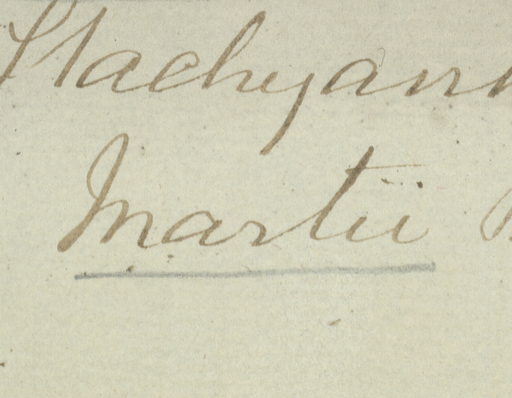 Stachyann
Martii